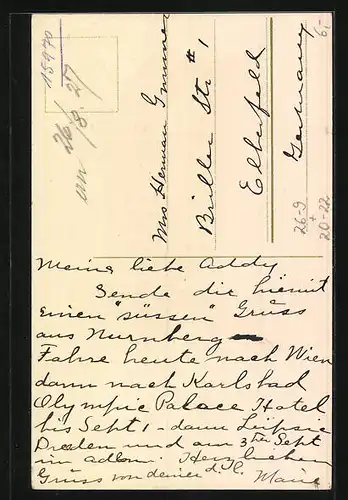 15970
am 26/8. 27
6,-
Mrs Herman Grimmer
Briller Str # 1
Elberfeld
Germany
26-9
+
20-22
Meine liebe Addy
Sende dir hiemit
einen "süssen" Gruss
aus Nurnberg
Fahre heute nach Wien
dann nach Karlsbad
Olympic Palace Hotel
bis Sept 1 - dann Leipsic
Dresden und am 3ten Sept
im Adlon. Herzlichen
Gruss von deiner d. l.